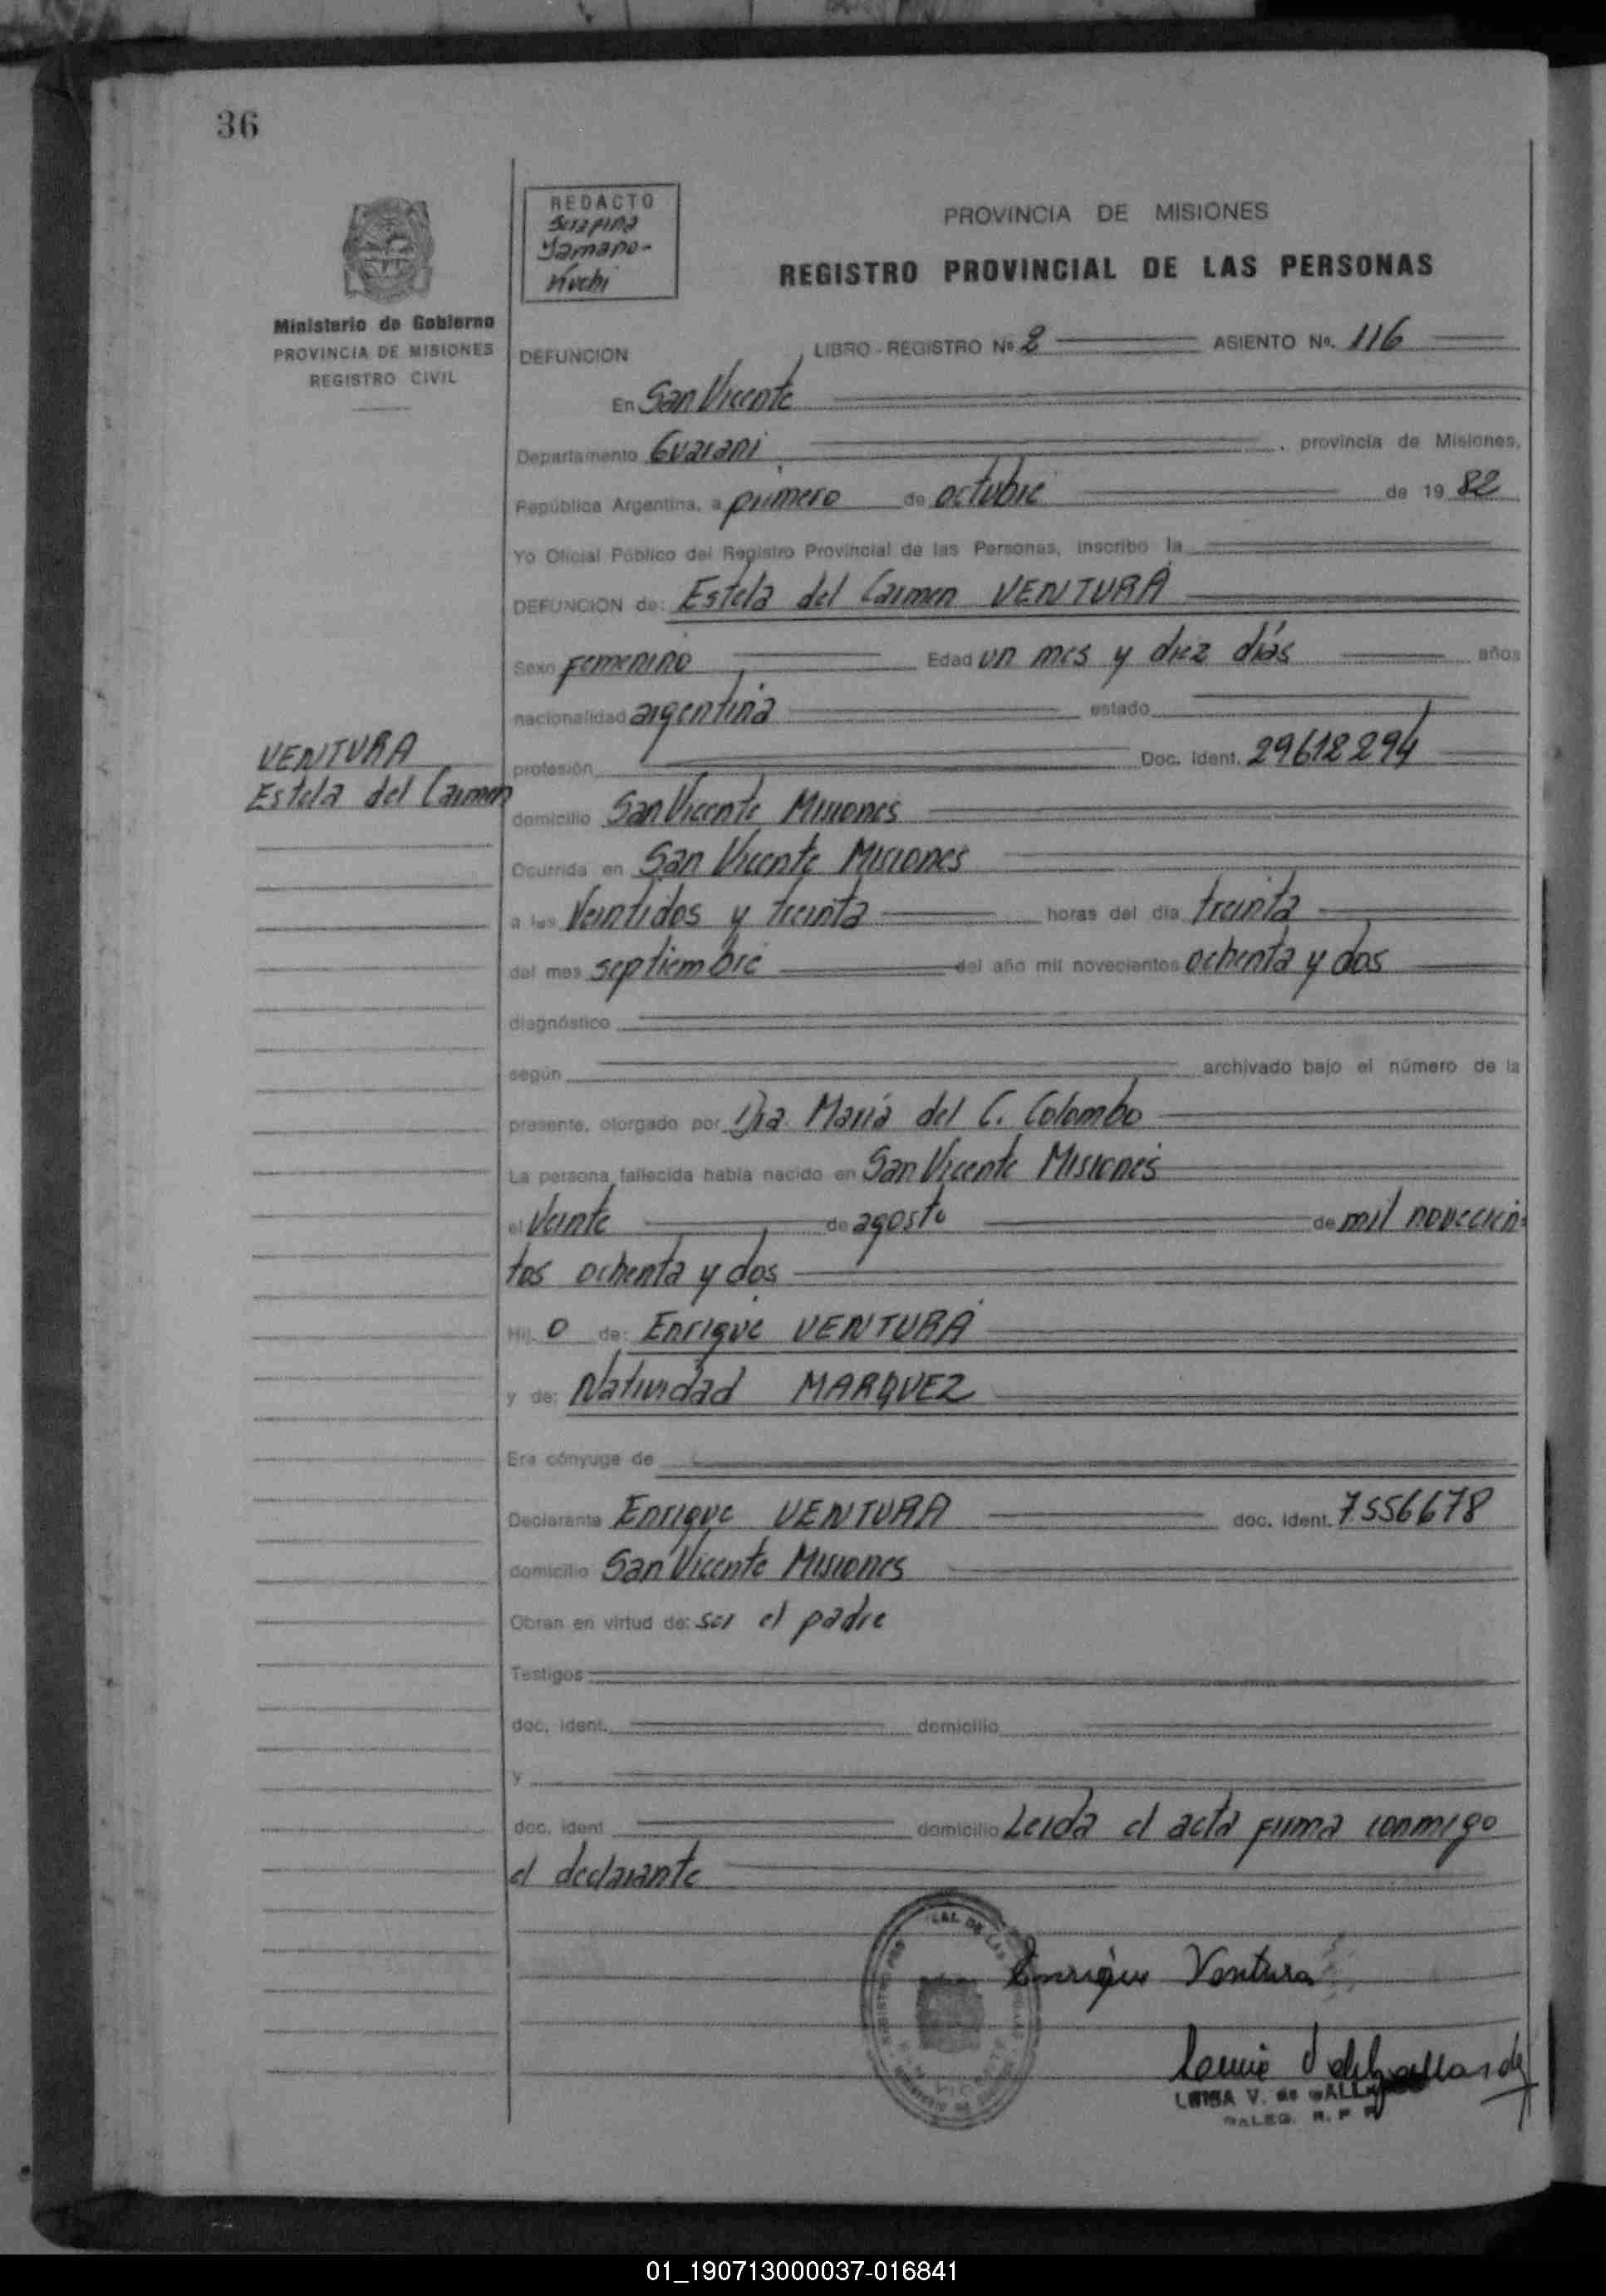 36
REDACTO
Serapina
Yamano-
Kuchi
PROVINCIA DE MISIONES
REGISTRO PROVINCIAL DE LAS PERSONAS
Ministerio de Gobierno
PROVINCIA DE MISIONES
REGISTRO CIVIL
DEFUNCION LIBRO - REGISTRO Nº 2 ASIENTO No. 116
En San Vicente
Departamento Guarani , provincia de Misiones,
República Argentina, a primero de octubre de 19 82
Yo Oficial Público del Registro Provincial de las Personas, inscribo la
DEFUNCION de: Estela del Carmen VENTURA
Sexo Femenino Edad un mes y diez días años
nacionalidad argentina estado
VENTURA
Estela del Carmen
profesión Doc. Ident. 29612294
domicilio San Vicente Misiones
Ocurrida en San Vicente Misiones
a las Veintidos y treinta horas del día treinta
del mes septiembre del año mil novecientos ochenta y dos
diagnóstico
según archivado bajo el número de la
presente, otorgado por Dra. María del C. Colombo
La persona fallecida había nacido en San Vicente Misiones
el Veinte de agosto de mil novecien=
tos ochenta y dos
Hij o de: Enrique VENTURA
y de: Natividad MARQUEZ
Era cónyuge de
Declarante Enrique VENTURA doc. Ident. 7.556678
domicilio San Vicente Misiones
Obran en virtud de: ser el padre
Testigos
doc. Ident. domicilio
y
doc. Ident domicilio Leida el acta firma conmigo
el declarante
Enrique Ventura
LUISA V. de
R. P. P.
01_190713000037-016841